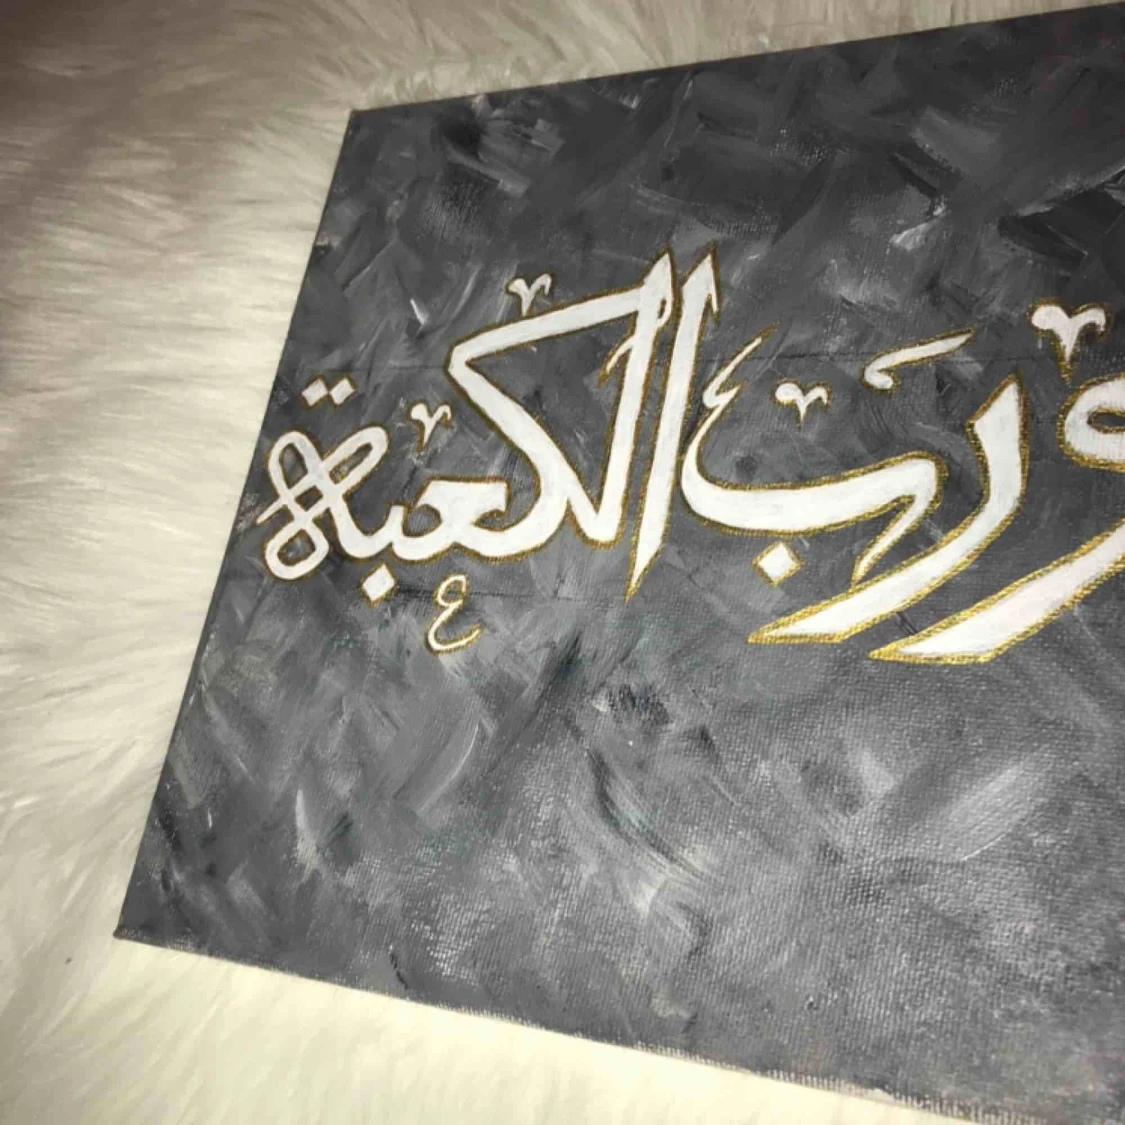 ورب الكعبة